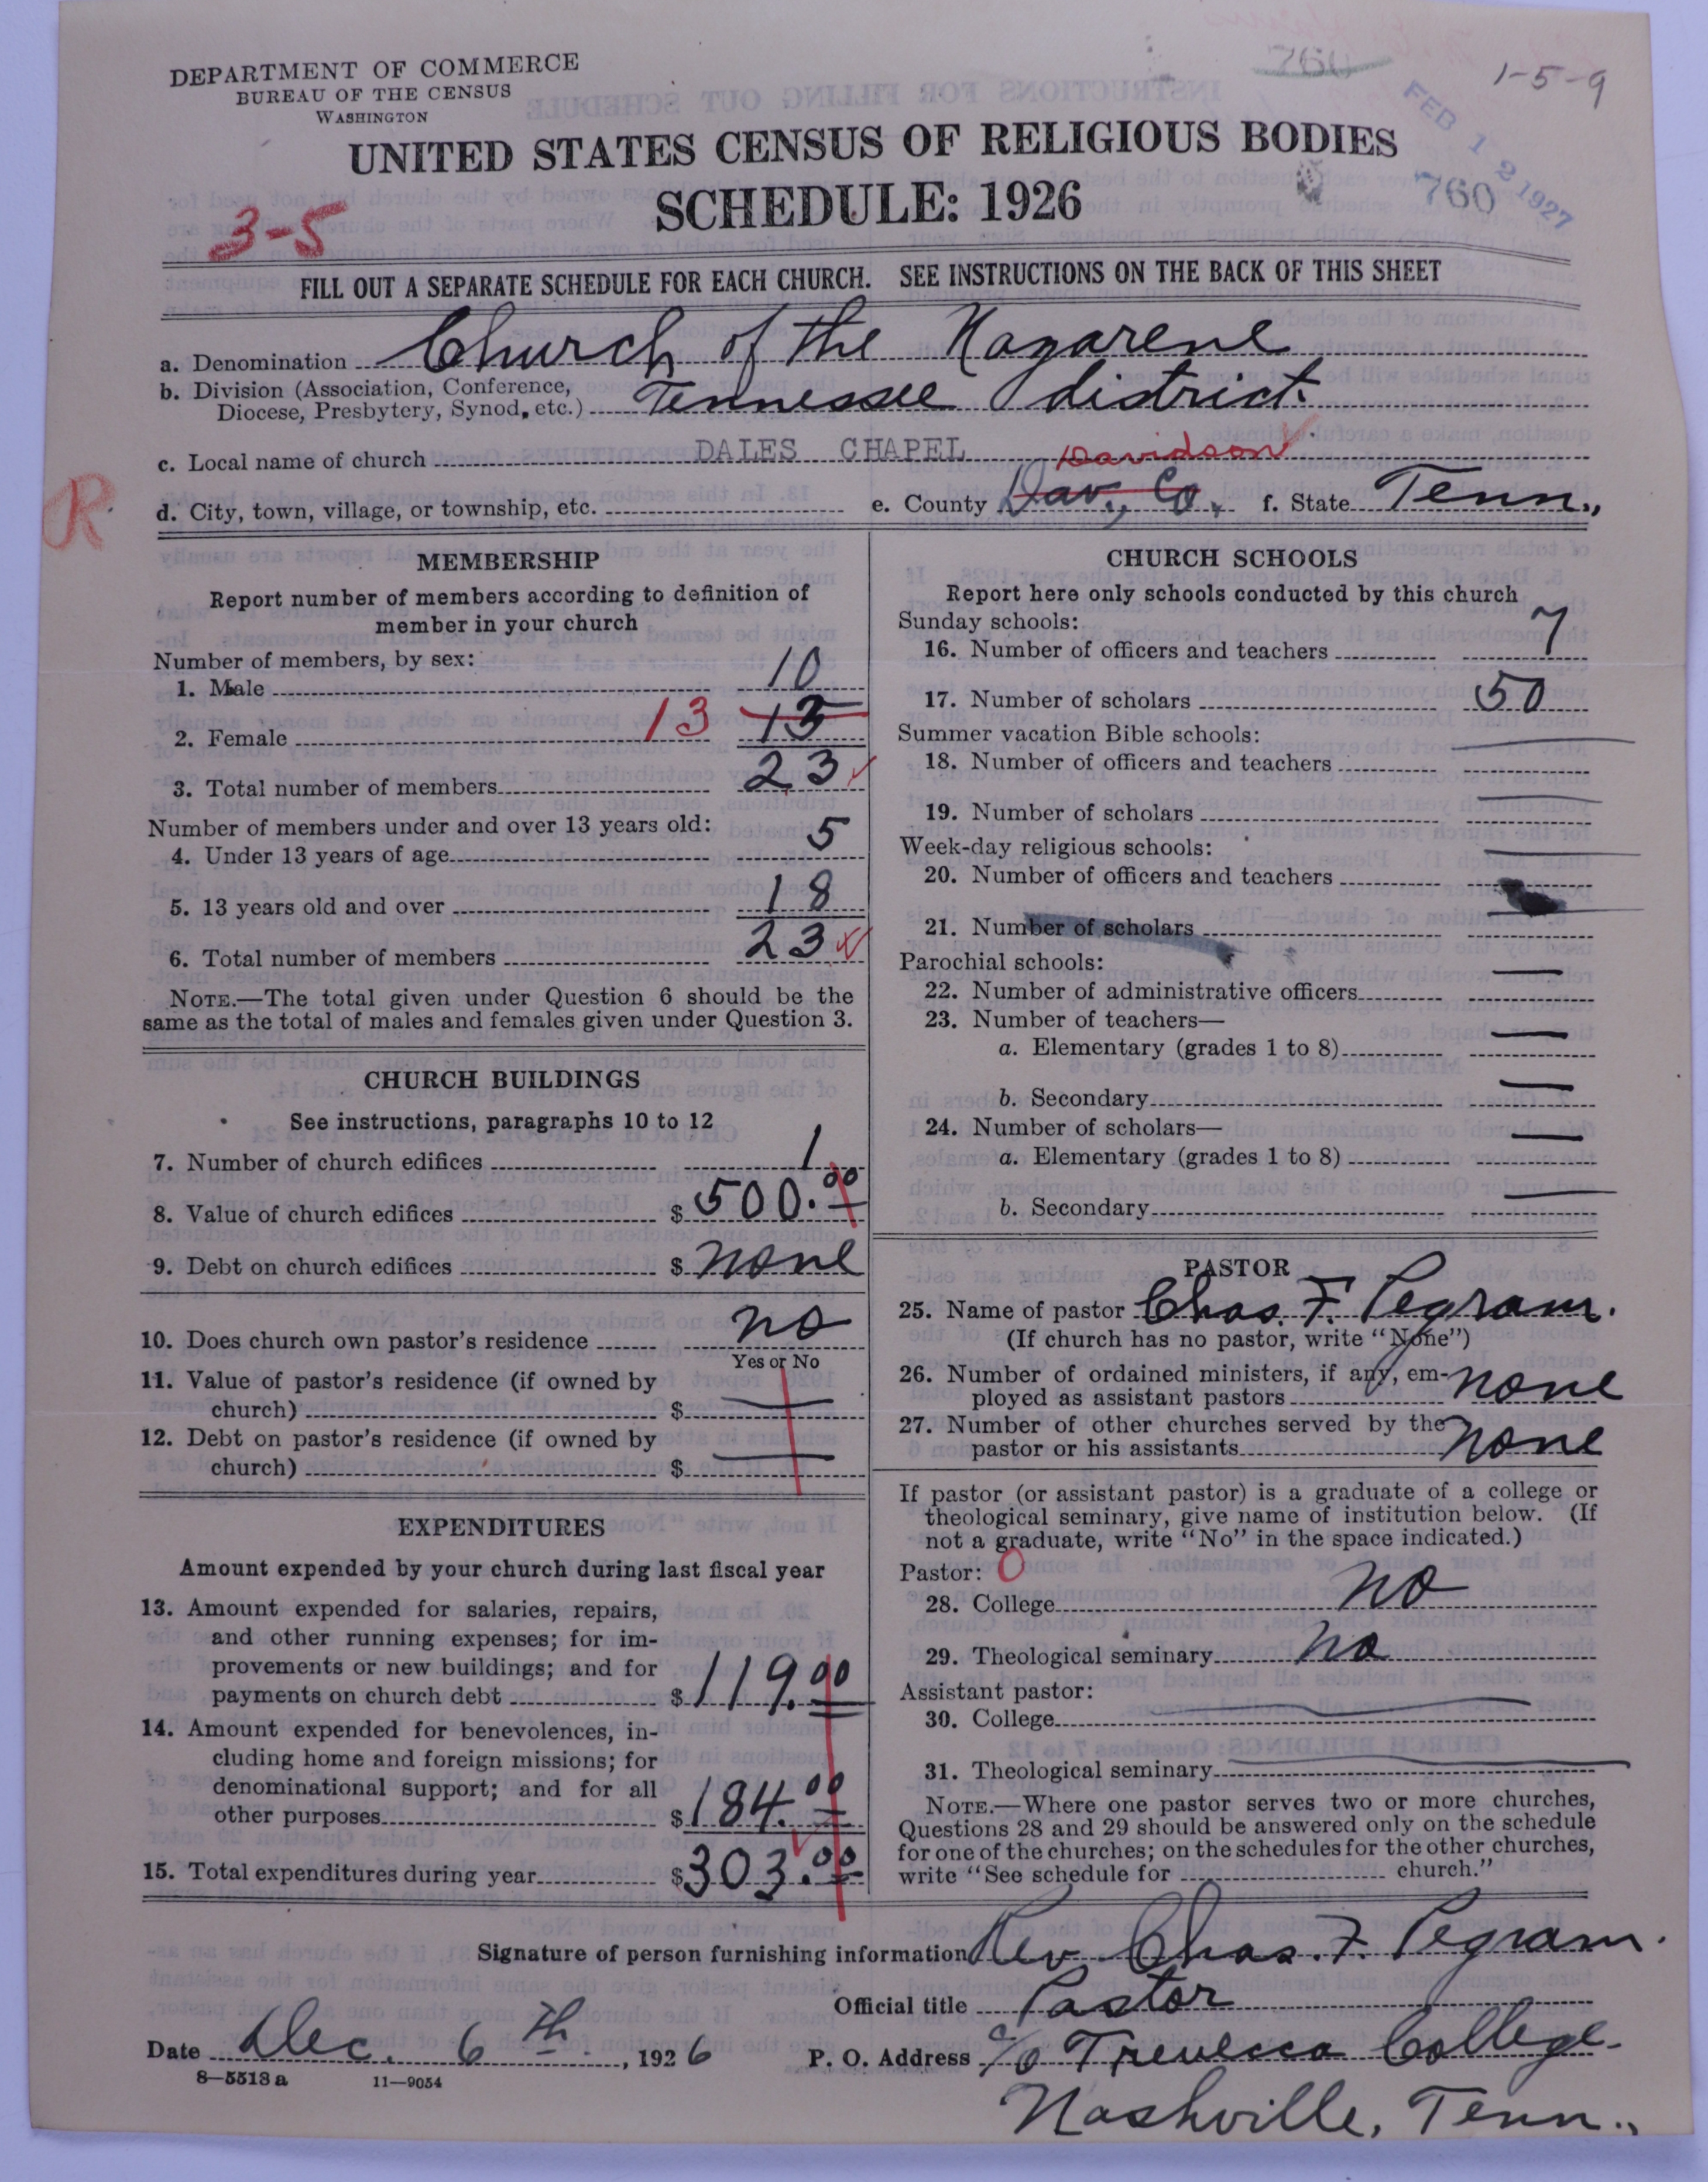 DEPARTMENT OF COMMERCE
BUREAU OF THE CENSUS
WASHINGTON
760
1-5-9
FEB 12 1927
UNITED STATES CENSUS OF RELIGIOUS BODIES
SCHEDULE: 1926
760
3-5
FILL OUT A SEPARATE SCHEDULE FOR EACH CHURCH. SEE INSTRUCTIONS ON THE BACK OF THIS SHEET
a. Denomination Church of the Nazarene
b. Division (Association, Conference,
Diocese, Presbytery, Synod, etc.) Tennessee District.
c. Local name of church DALES CHAPEL
Davidson
R
d. City, town, village, or township, etc. e. County Dav., Co. f. State Tenn.,
MEMBERSHIP
Report number of members according to definition of
member in your church
Number of members, by sex:
1. Male 10
2. Female 13 13
3. Total number of members 23
Number of members under and over 13 years old:
4. Under 13 years of age 5
5. 13 years old and over 18
6. Total number of members 23
NOTE.—The total given under Question 6 should be the
same as the total of males and females given under Question 3.
CHURCH BUILDINGS
See instructions, paragraphs 10 to 12
7. Number of church edifices 1
8. Value of church edifices $ 500.00
9. Debt on church edifices $ none
10. Does church own pastor's residence no
Yes or No
11. Value of pastor's residence (if owned by
church) $ —
12. Debt on pastor's residence (if owned by
church) $ —
EXPENDITURES
Amount expended by your church during last fiscal year
13. Amount expended for salaries, repairs,
and other running expenses; for im-
provements or new buildings; and for
payments on church debt $ 119.00
14. Amount expended for benevolences, in-
cluding home and foreign missions; for
denominational support; and for all
other purposes $ 184.00
15. Total expenditures during year $ 303.00
CHURCH SCHOOLS
Report here only schools conducted by this church
Sunday schools:
16. Number of officers and teachers 7
17. Number of scholars 50
Summer vacation Bible schools:
18. Number of officers and teachers —
19. Number of scholars —
Week-day religious schools:
20. Number of officers and teachers —
21. Number of scholars —
Parochial schools:
22. Number of administrative officers —
23. Number of teachers—
a. Elementary (grades 1 to 8) —
b. Secondary —
24. Number of scholars—
a. Elementary (grades 1 to 8) —
b. Secondary —
PASTOR
25. Name of pastor Chas. F. Pegram.
(If church has no pastor, write "None")
26. Number of ordained ministers, if any, em-
ployed as assistant pastors none
27. Number of other churches served by the
pastor or his assistants none
If pastor (or assistant pastor) is a graduate of a college or
theological seminary, give name of institution below. (If
not a graduate, write "No" in the space indicated.)
Pastor: 0
28. College no
29. Theological seminary no
Assistant pastor:
30. College —
31. Theological seminary —
NOTE.—Where one pastor serves two or more churches,
Questions 28 and 29 should be answered only on the schedule
for one of the churches; on the schedules for the other churches,
write "See schedule for church."
Signature of person furnishing information Rev. Chas. F. Pegram.
Official title Pastor
Date Dec. 6th., 1926 P. O. Address c/o Trevecca College.
8—5513a 11—9054
Nashville, Tenn.,